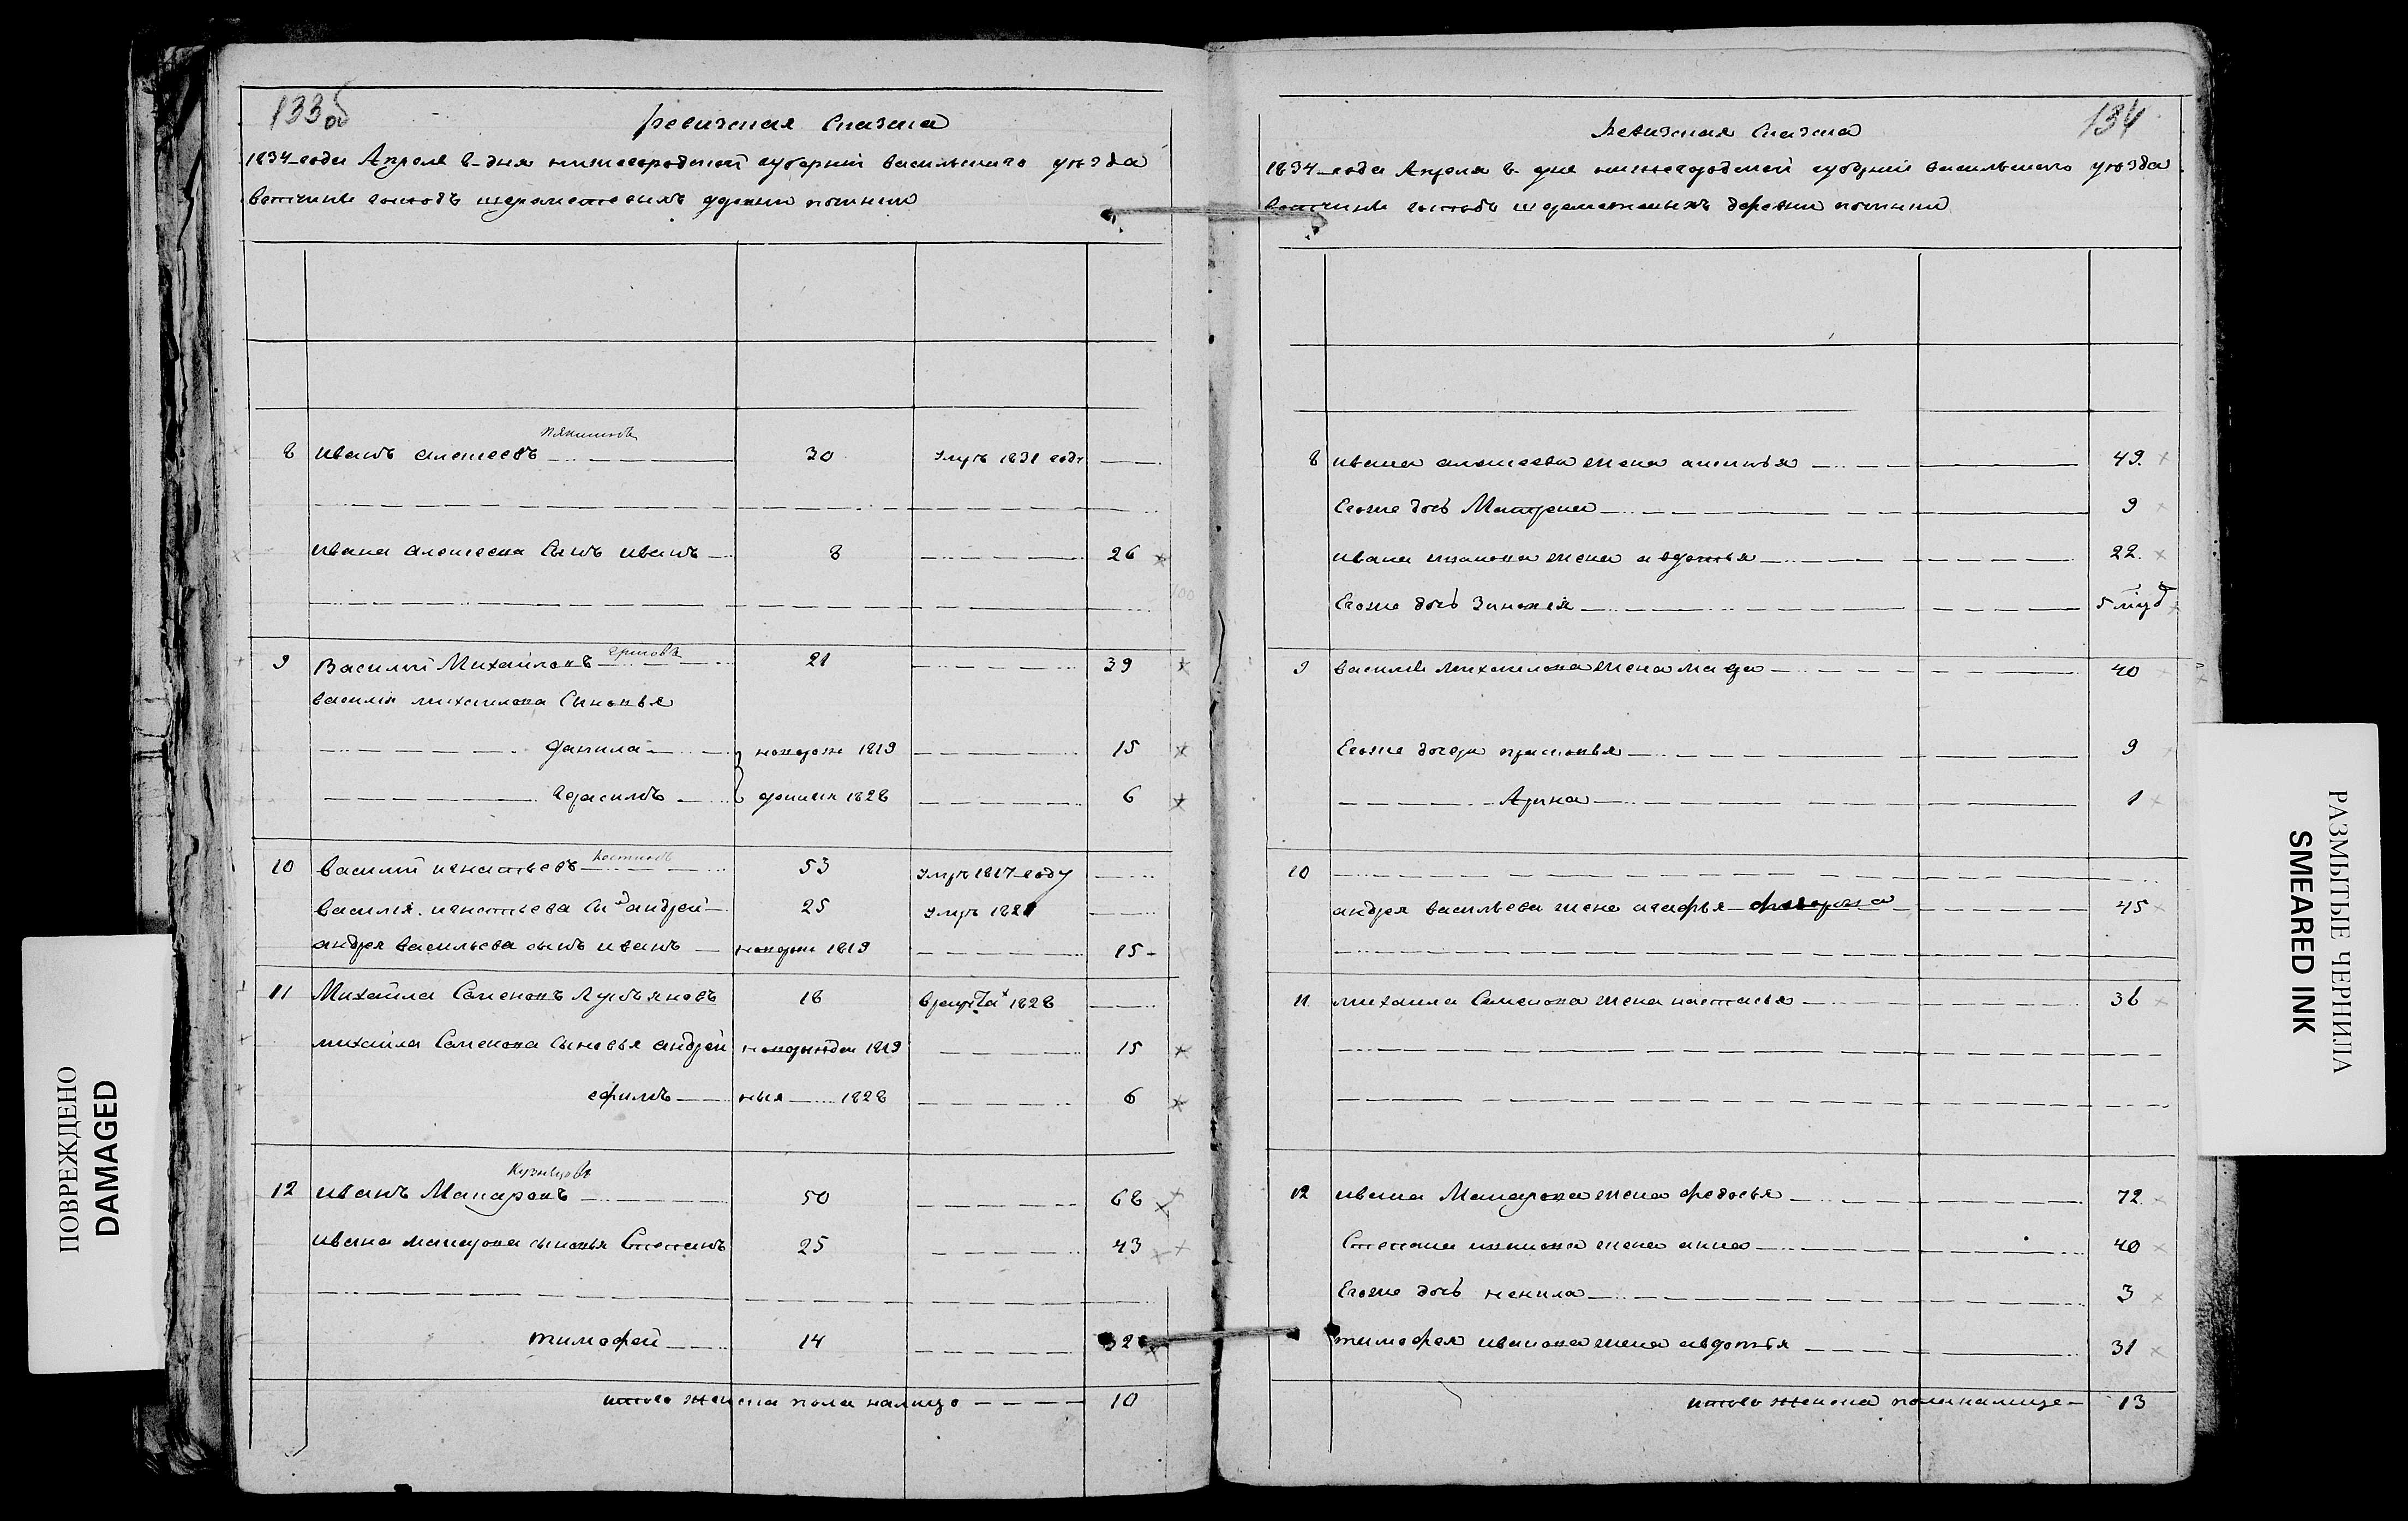 133об
Ревизская Сказка
1834 года Апреля 8 дня нижегородской губернии васильскаго уезда
вотчины господъ шереметевыхъ деревни починки
8 иванъ алексеевъ 30 умръ 1831 годе
ивана алексеева Сынъ иванъ 8 26
9 Василий Михайловъ 21 39
василия михаилова Сыновья
данила новорож 1819 15
герасимъ 1828 6
10 василий игнатьевъ 53 умръ 1817 году
василия игнатьева Сы андрей 25 умръ 1821
андрея васильева сынъ иванъ новорож 1819 15
11 Михайла Семеновъ Лукьяновъ 18 1828
михаила Семенова Сыновья андрей 1819 15
ефимъ 1828 6
Кузнецовъ
12 иванъ Макаровъ 50 68
ивана макарова сыновья Степанъ 25 43
тимофей 14 32
итого женска пола налицо 10
134
Ревизская Сказка
1834 года Апреля 8 дня нижегородской губернии васильскаго уезда
вотчины господъ шереметевыхъ деревни починки
8 ивана алексеева жена аксинья 49
Егоже дочь Матрена 9
ивана иванова жена авдотья 22
Егоже дочь Зиновея 5
9 василия михаилова жена мавра 40
Егоже дочери прасковья 9
Арина 1
10
андрея васильева жена агафья 45
11 михаила Семенова жена настасья 36
12 ивана Макарова жена федосья 72
Степана иванова жена анна 40
Егоже дочь ненила 3
тимофея иванова жена авдотья 31
итого женска пола налице 13
ПОВРЕЖДЕНО
DAMAGED
РАЗМЫТЫЕ ЧЕРНИЛА
SMEARED INK